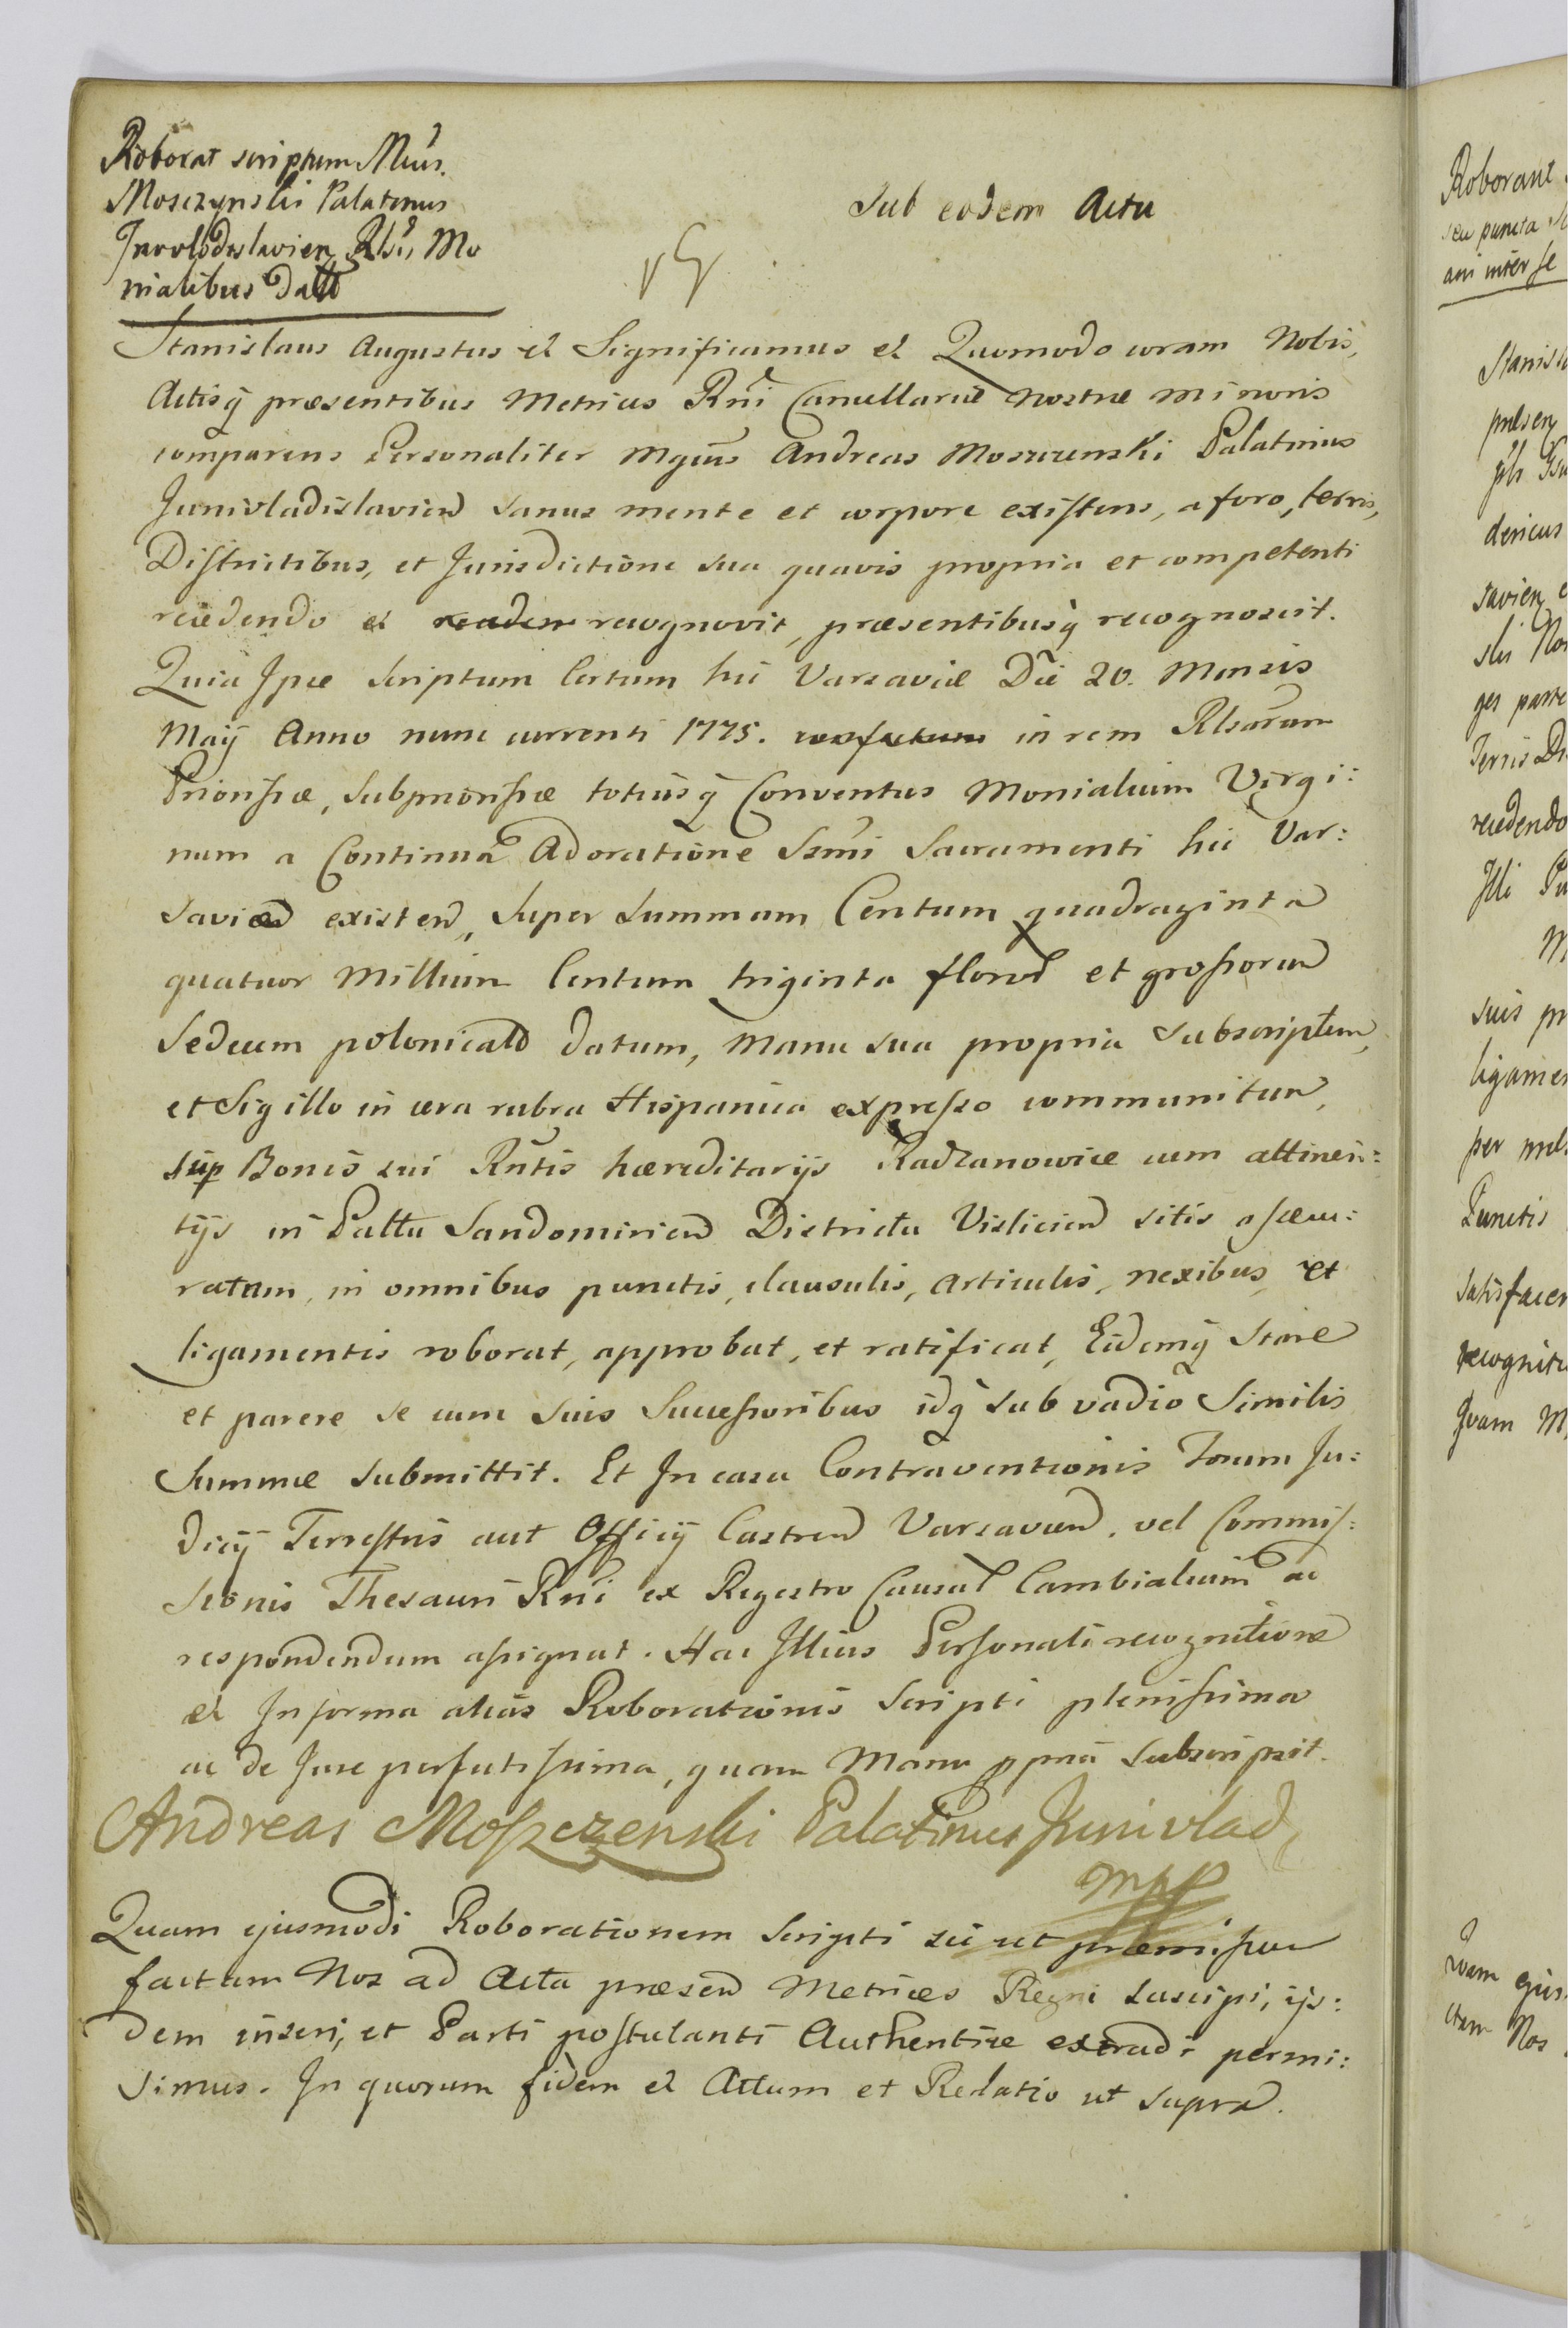 Roborat scriptum Mcus.
Mosczynski Palatinus
Inowlodislavien Rlsis Mo
nialibus datt
Sub eodem Actu
Stanislaus Augustus et Significamus et Quomodo coram Nobis,
Actisq praesentibus Metrices Rni Cancellariae Nostrae Minoris
comparens Personaliter Mgcus Andreas Moszczenski Palatinus
Junivladislavien sanus mente et corpore existens, a foro, terris,
Districtibus, et Jurisdictione sua quavis propria et competenti
recedendo et recognovit, praesentibusq recognoscit.
Quia Ipse Scriptum Certum hic Varsaviae Die 20. Mensis
Maij Anno nunc currenti 1775. confectum in rem Rlsarum
Priorissae, Subpriorissae totiusq Conventus Monialium Virgi:
num a Continua Adoratione Ssmi Sacramenti hic Var:
savien existen, Super Summam Centum quadraginta
quatuor Millium Centum triginta floren et grossorum
Sedecim polonicald datum, Manu sua propria subscriptum,
et Sigillo in cera rubra Hispanica expresso communitum,
sup Bonis sui Rntis haereditarijs Radzanowice cum attinen:
tijs in Pallu Sandomirien Districtu Vislicien sitis assecu:
ratum, in omnibus punctis, clausulis, articulis, nexibus, et
ligamentis roborat, approbat, et ratificat, Eidemq Stare
et parere se cum suis Successoribus idq sub vadio Similis
Summae submittit. Et In casu Contraventionis Forum Ju:
dicij Terrestris aut Officij Castren Varsavien. vel Commis:
sionis Thesauri Rni ex Regestro Causar Cambialium ad
respondendum assignat. Hac Illius Personali recognitione
et In forma alias Roborationis Scripti plenissima
ac de Jure perfectissima, quam Manu ppria Subscripsit.
Andreas Moszczenski Palatinus Junivlad
mpp
Quam ejusmodi Roborationem Scripti sic ut praemissum
factam Nos ad Acta praesen Metrices Regni suscipi, ijs:
dem inseri, et Parti postulanti Authentice extradi permi:
simus. In quorum fidem et Actum et Relatio ut supra.
Roborant
seu puncta
ani inter se
Stanisla
praesen
dericus
savien
slis
ges parte
Terris Di
recedendo
Illi
suis pr
ligamen
per
Punctis
satisfacer
recogniti
Quam M
Quam ejus
ctam Nos